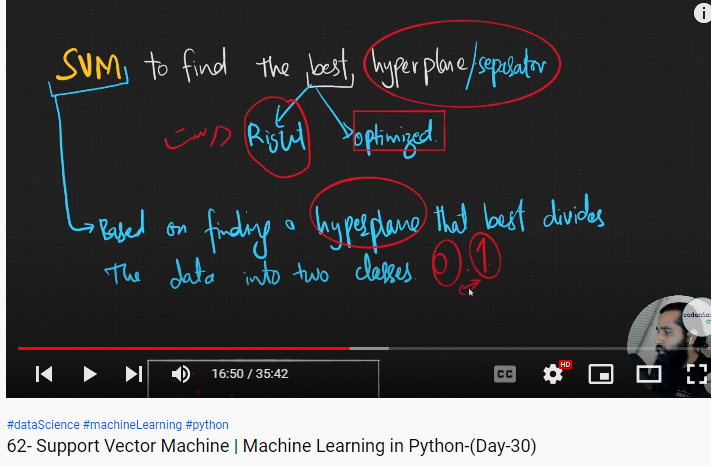 SVM, to find the best, hyperplane/separator
Right optimized.
Based on finding a hyperplane that best divides
The data into two classes. 0. 1
codanics
16:50 / 35:42
CC
HD
#dataScience #machineLearning #python
62- Support Vector Machine | Machine Learning in Python-(Day-30)